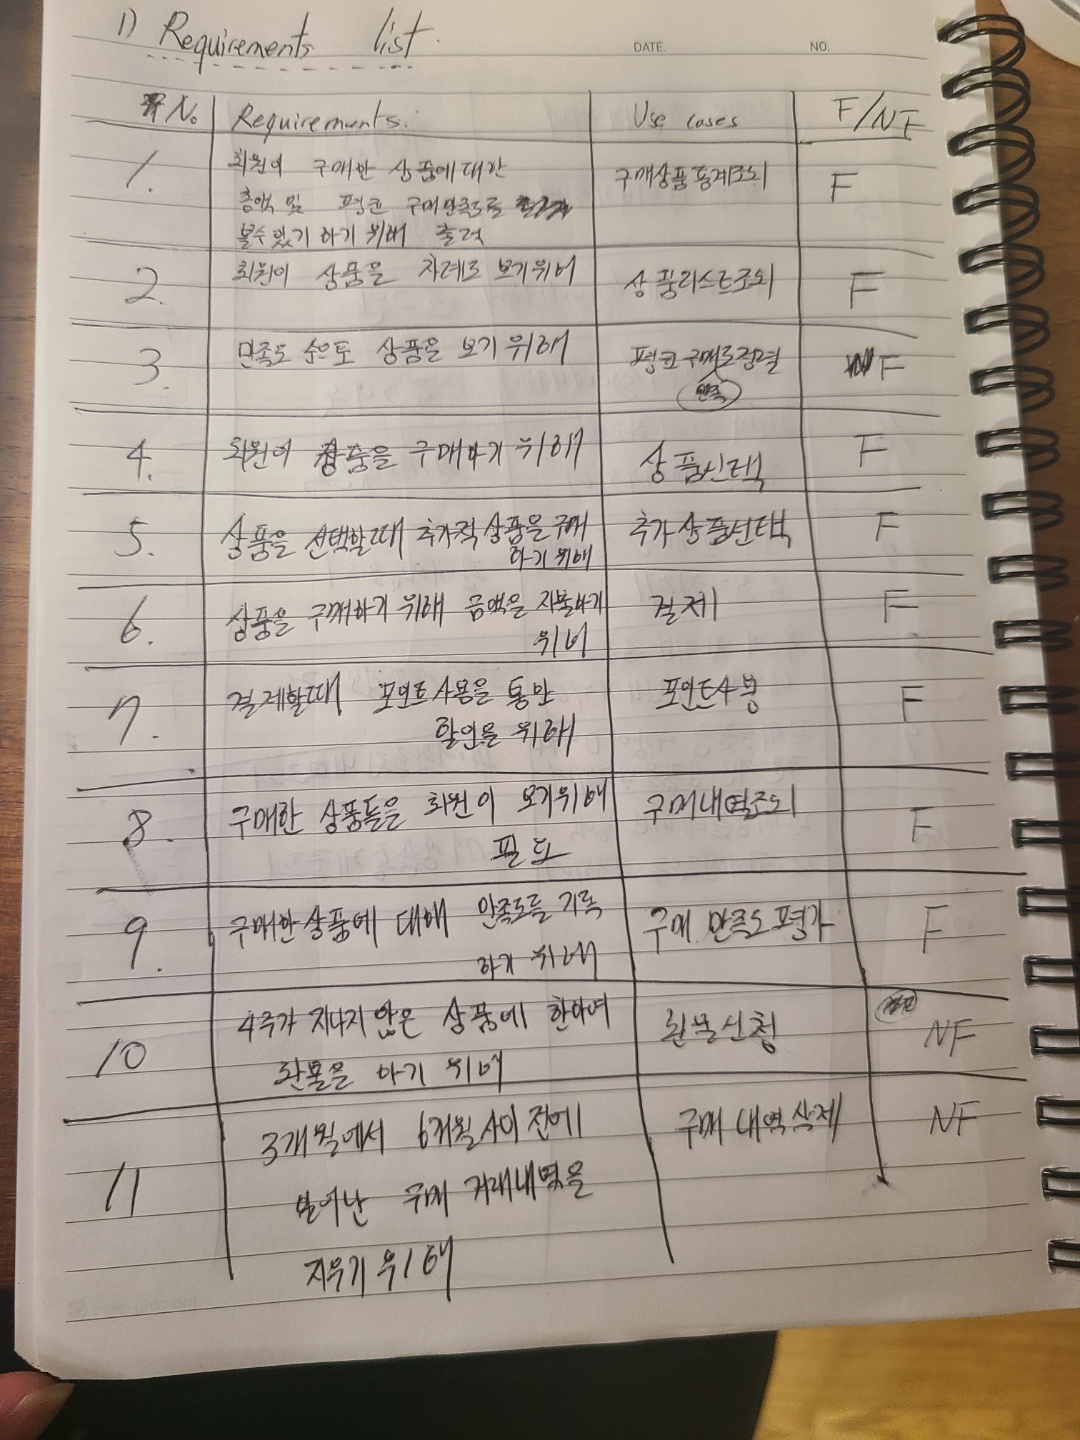 1) Requirements list.
DATE. NO.
No Requirements. Use cases F/NF
1. 회원이 구매한 상품에 대한
총액 및 평균 구매만족도를
볼수 있기 하기 위해 출력
구매상품통계조회 F
2. 회원이 상품을 차례로 보기위해 상품리스트조회 F
3. 만족도 순으로 상품을 보기 위해 평균구매도정렬 F
만족
4. 회원이 상품을 구매하기 위해 상품선택 F
5. 상품을 선택할때 추가적 상품을 구매 추가상품선택 F
하기 위해
6. 상품을 구매하기 위해 금액을 지불하기 결제 F
위해
7. 결제할때 포인트사용을 통한 포인트사용 F
할인을 위해
8. 구매한 상품들을 회원이 보기위해 구매내역조회 F
필요
9. 구매한상품에 대해 만족도를 기록 구매 만족도평가 F
하기 위해
10 4주가 지나지 않은 상품에 한하여 환불신청 NF
환불을 하기 위해
11 3개월에서 6개월사이 전에 구매 내역삭제 NF
일어난 구매 거래내역을
지우기 위해